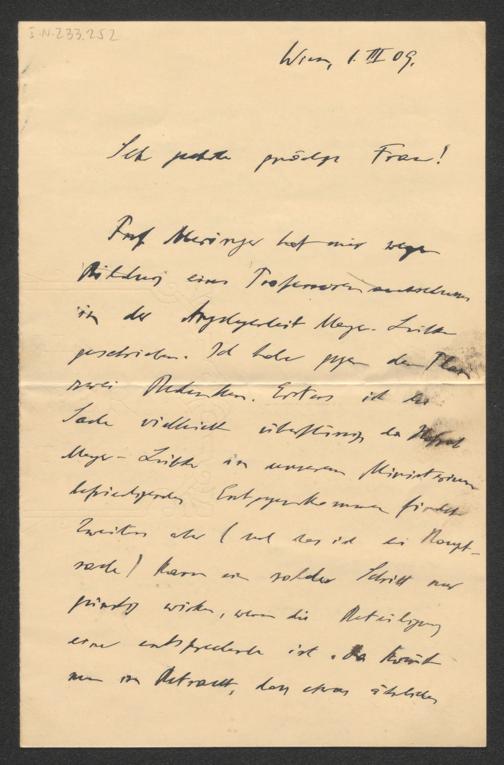 I.N. 233.252
Wien, 1. III 09.
Sehr geehrte gnädige Frau!
Prof Meringer hat mir wegen
Bildung eines Professoren
in der Angelegenheit Meyer-Lübke
geschrieben. Ich habe gegen den Plan
zwei Bedenken. Erstens ist die
Sache vielleicht überflüssig da Hofrat
Meyer-Lübke in unserem Ministerium
befriedigendes Entgegenkommen findet
Zweitens aber (und das ist die Haupt-
sache) kann ein solcher Schritt nur
günstig wirken, wenn die Beteiligung
eine entsprechende ist. Da kommt
nun in Betracht, dass etwas ähnliches